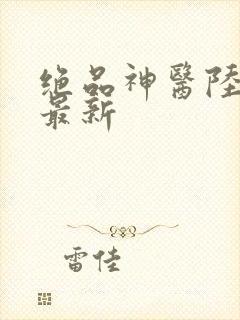 绝品神醫陸
最新
雷佳